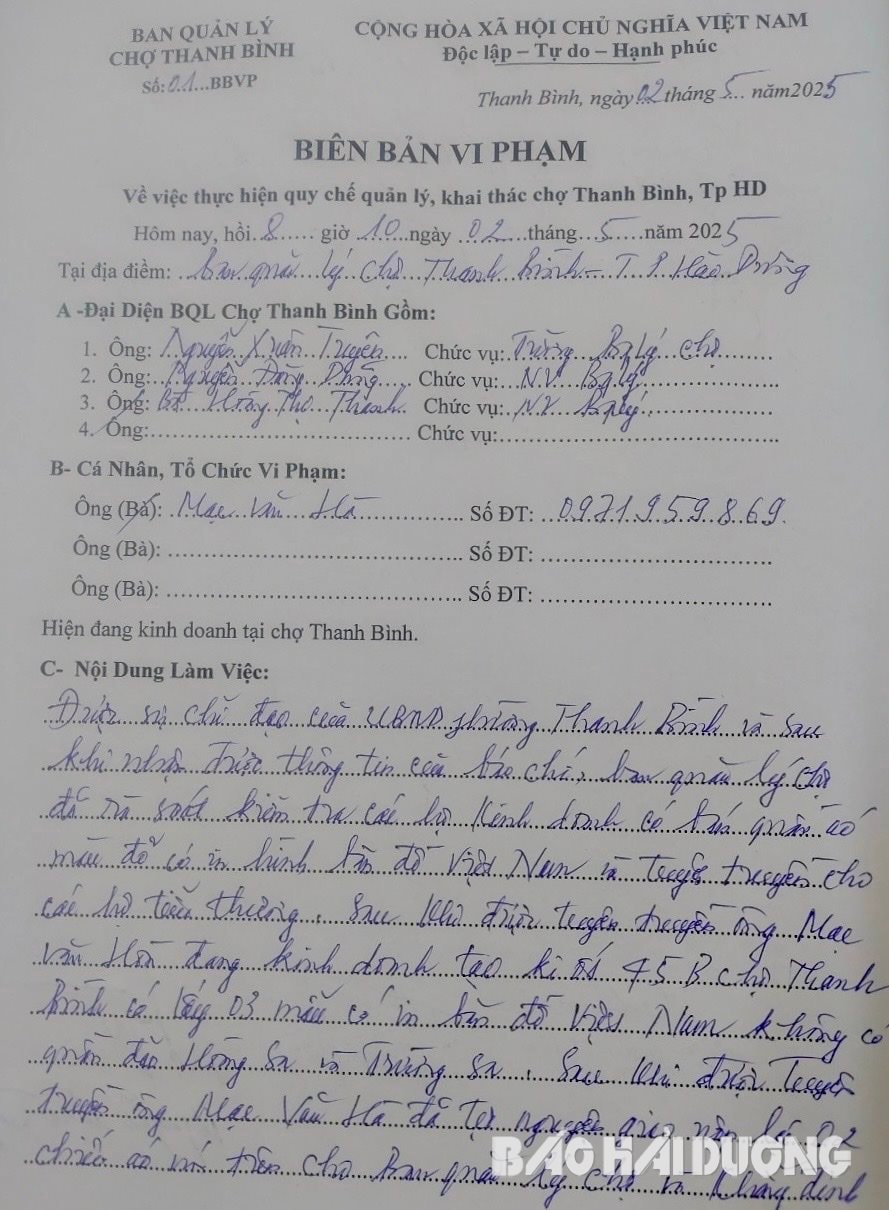 BAN QUẢN LÝ
CHỢ THANH BÌNH
Số: 01...BBVP
CỘNG HÒA XÃ HỘI CHỦ NGHĨA VIỆT NAM
Độc lập – Tự do – Hạnh phúc
Thanh Bình, ngày 02 tháng 5... năm 2025
BIÊN BẢN VI PHẠM
Về việc thực hiện quy chế quản lý, khai thác chợ Thanh Bình, Tp HD
Hôm nay, hồi 8..... giờ 10...ngày 02...tháng...5...năm 2025
Tại địa điểm: Ban quản lý chợ Thanh Bình – T.P Hải Dương
A -Đại Diện BQL Chợ Thanh Bình Gồm:
1. Ông: Nguyễn Xuân Truyền.... Chức vụ: Trưởng B.q lý chợ
2. Ông: Nguyễn Đăng .... Chức vụ: N.V B.q lý
3. Ông: Hoàng Thọ Thanh. Chức vụ: N.V B.q lý
4. Ông:.................................... Chức vụ:.......................................
B- Cá Nhân, Tổ Chức Vi Phạm:
Ông (Bà): Mạc Văn Hà ............... Số ĐT: 0971959869
Ông (Bà): ........................................ Số ĐT: ................................
Ông (Bà): ........................................ Số ĐT: ................................
Hiện đang kinh doanh tại chợ Thanh Bình.
C- Nội Dung Làm Việc:
Được sự chỉ đạo của UBND phường Thanh Bình và sau
khi nhận được thông tin của báo chí, ban quản lý chợ
đã rà soát kiểm tra các hộ kinh doanh có bán quần áo
màu đỏ có in hình bản đồ Việt Nam và tuyên truyền cho
các hộ tiểu thương. Sau khi được tuyên truyền ông Mạc
Văn Hà đang kinh doanh tại ki ốt 45 B chợ Thanh
Bình có 03 mẫu có in bản đồ Việt Nam không có
quần đảo Hoàng Sa và Trường Sa. Sau khi được tuyên
truyền ông Mạc Văn Hà đã tự nguyện giao nộp lại 02
chiếc áo nói trên cho Ban quản lý chợ và khẳng định
BÁO HẢI DƯƠNG